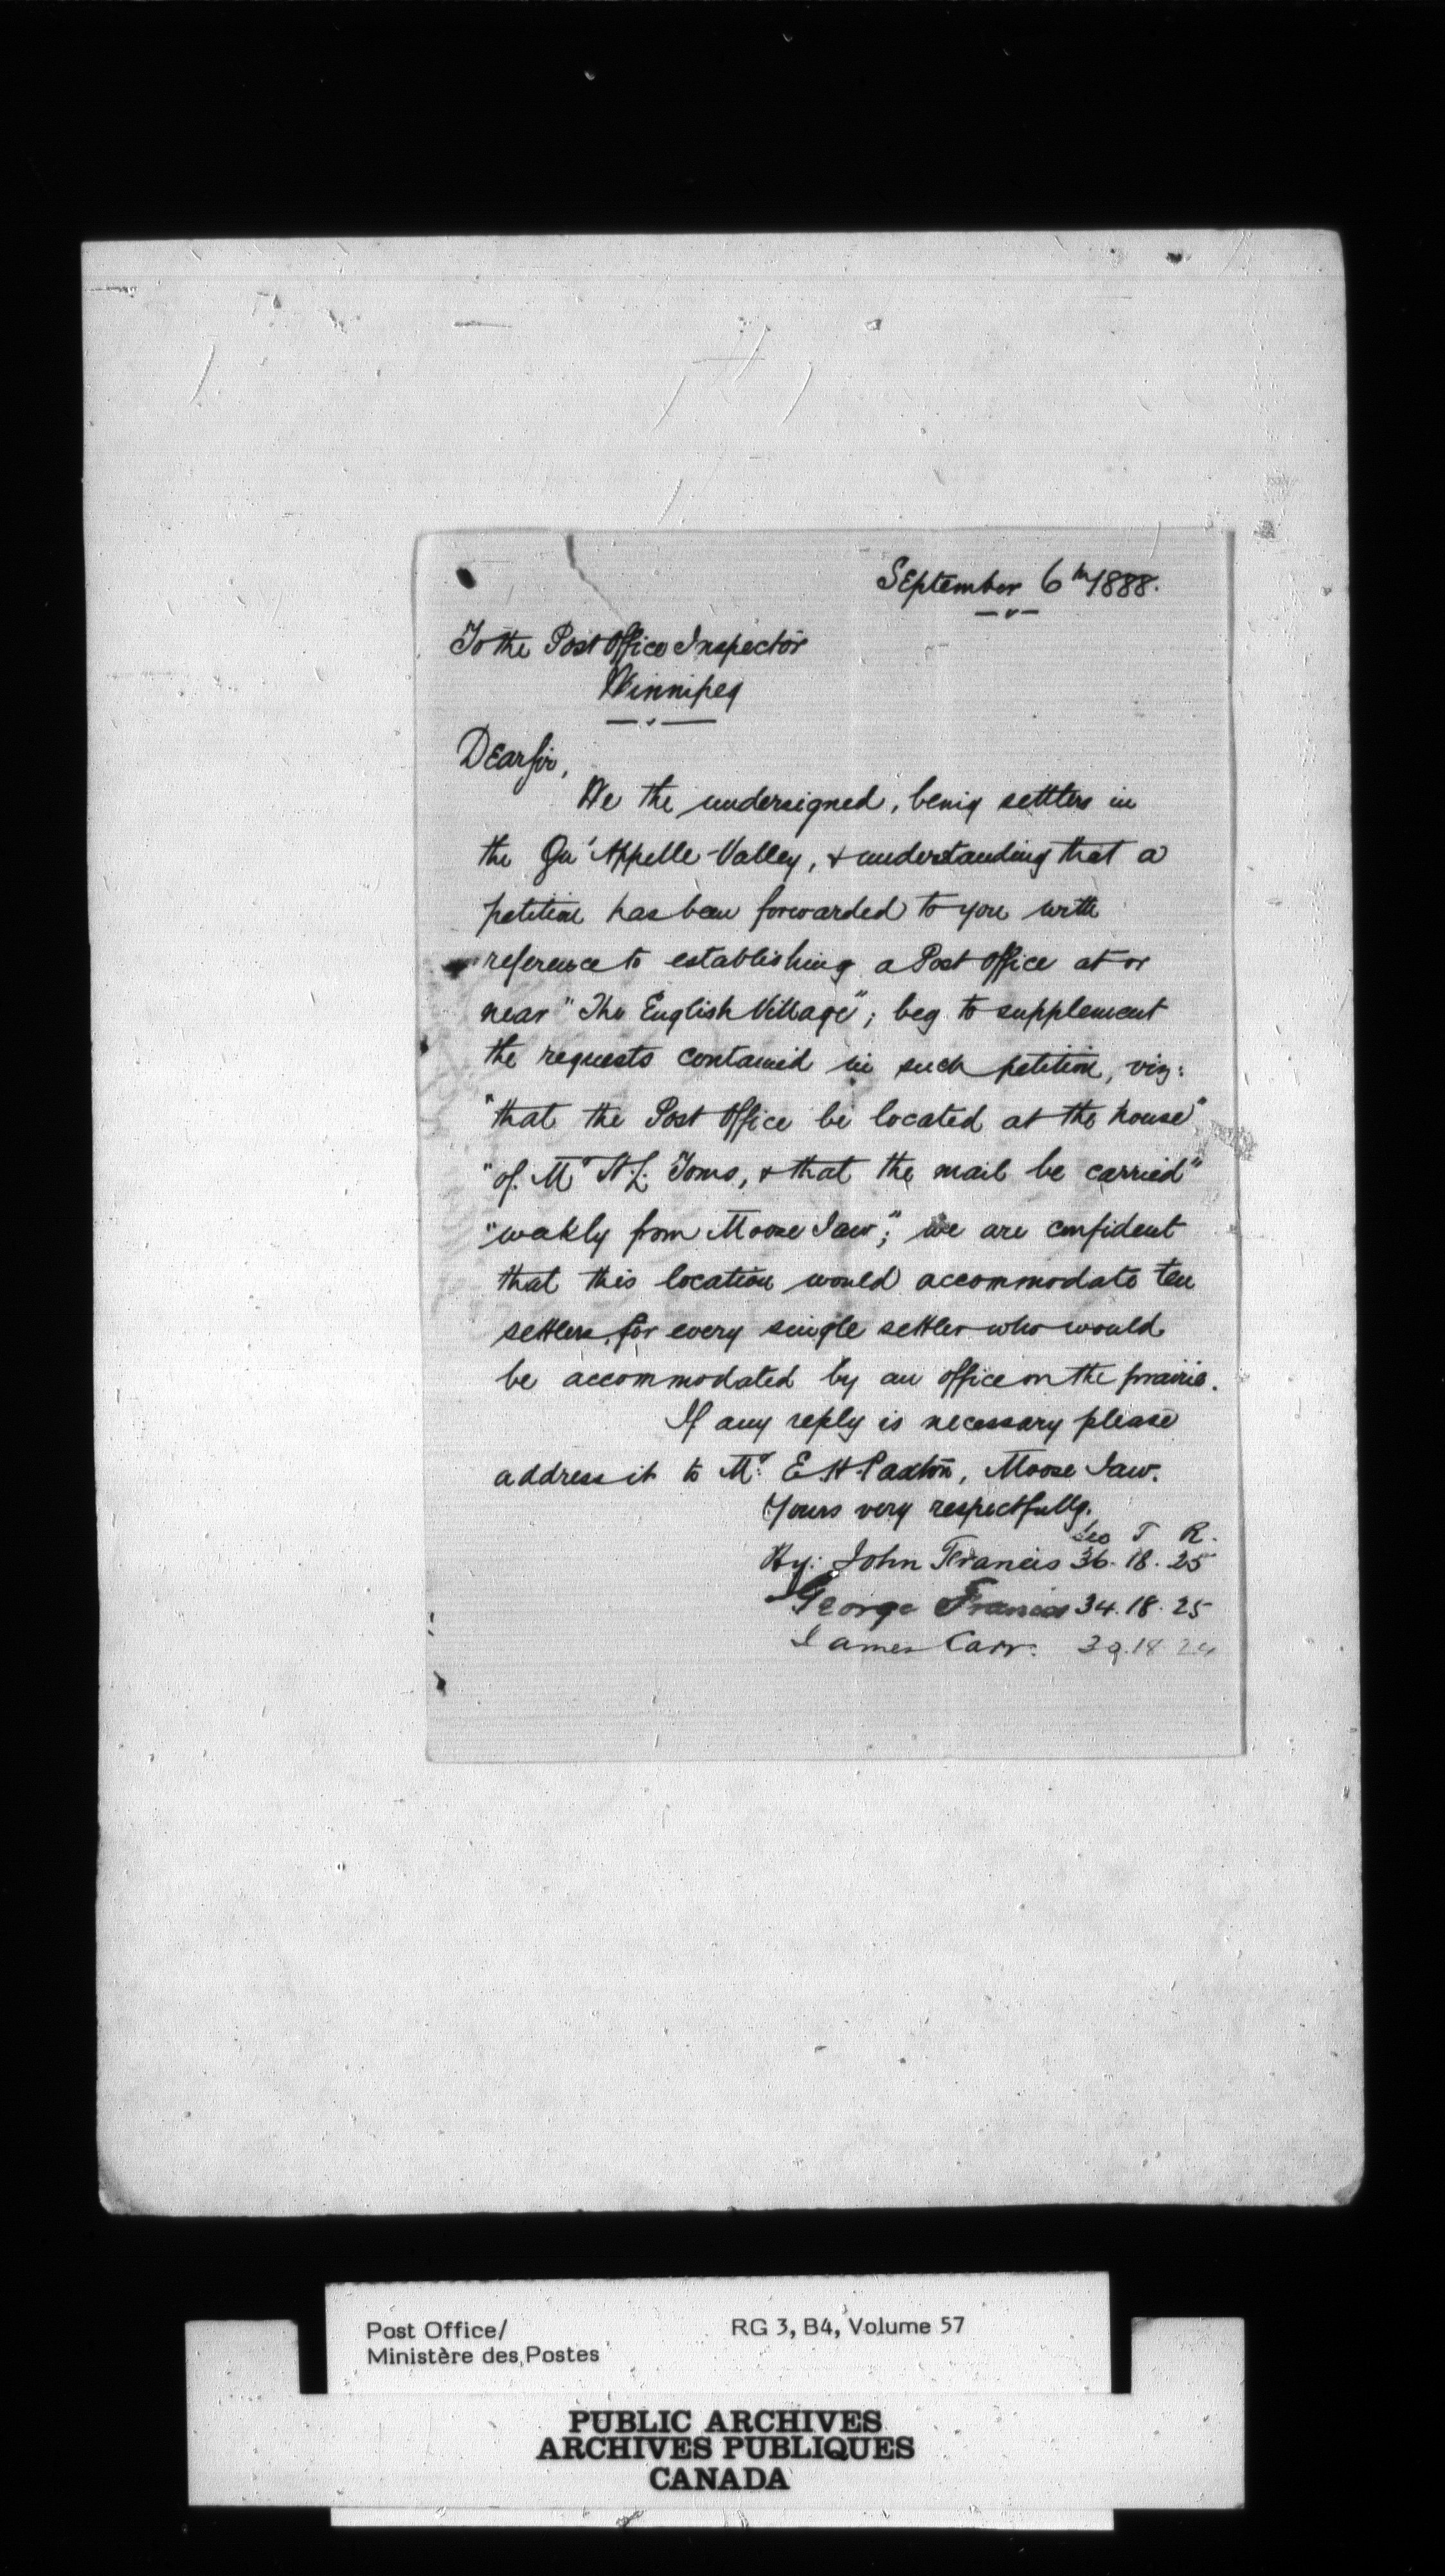 September 6th 1888.
To the Post Office Inspector
Winnipeg
Dear Sir,
We the undersigned, being settlers in
the Qu'Appelle Valley, & understanding that a
petition has been forwarded to you with
reference to establishing a Post Office at or
near "The English Village"; beg to supplement
the requests contained in such petition, viz:
"that the Post Office be located at the house"
"of Mr Toms, & that the mail be carried"
"weakly from Moose Jaw;" we are confident
that this location would accommodate ten
settlers, for every single settler who would
be accommodated by an office on the prairie.
If any reply is necessary please
address it to Mr. E H Paxton, Moose Jaw.
Yours very respectfully.
Sec T R.
By: John Francis 36. 18. 25
George Francis 34. 18. 25
James Carr. 18 24
Post Office/ RG 3, B4, Volume 57
Ministère des Postes
PUBLIC ARCHIVES
ARCHIVES PUBLIQUES
CANADA